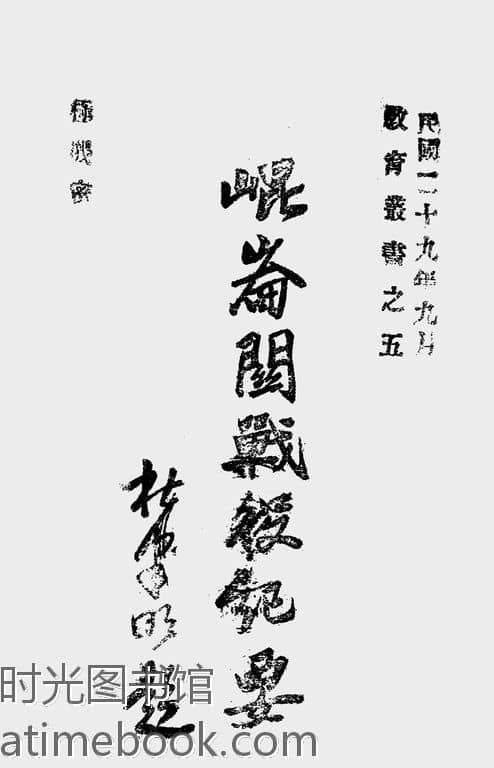 民國二十九年九月
教育叢書之五
崐崙關戰役紀要
杜聿明題
極機密
时光图书馆
atimebook.com